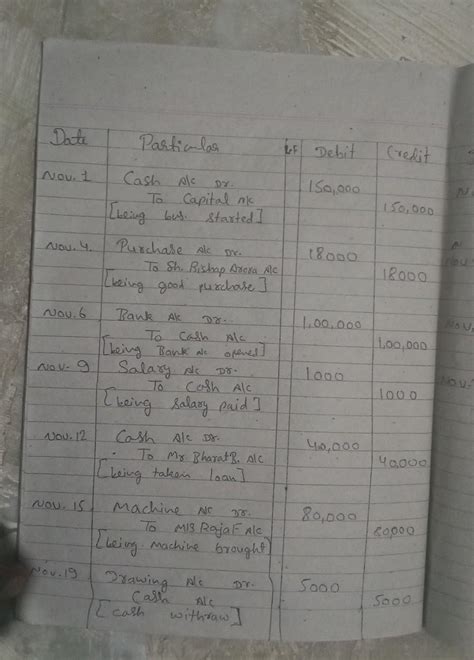 Date Particular LF Debit Credit
Nov. 1 Cash A/c Dr. 150,000
To Capital A/c 150,000
[being bus. started]
Nov. 4. Purchase A/c Dr. 18000
To Sh. Rishap Arora A/c 18000
[being good purchase]
Nov. 6 Bank A/c Dr. 1,00,000
To Cash A/c 1,00,000
[being Bank A/c opened]
Nov. 9 Salary A/c Dr. 1000
To Cash A/c 1000
[being salary paid]
Nov. 12 Cash A/c Dr. 40,000
To Mr. Bharat B. A/c 40,000
[being taken loan]
Nov. 15 Machine A/c Dr. 80,000
To M/S Raja F. A/c 80,000
[being machine brought]
Nov. 19 Drawing A/c Dr. 5000
Cash A/c 5000
[cash withraw]